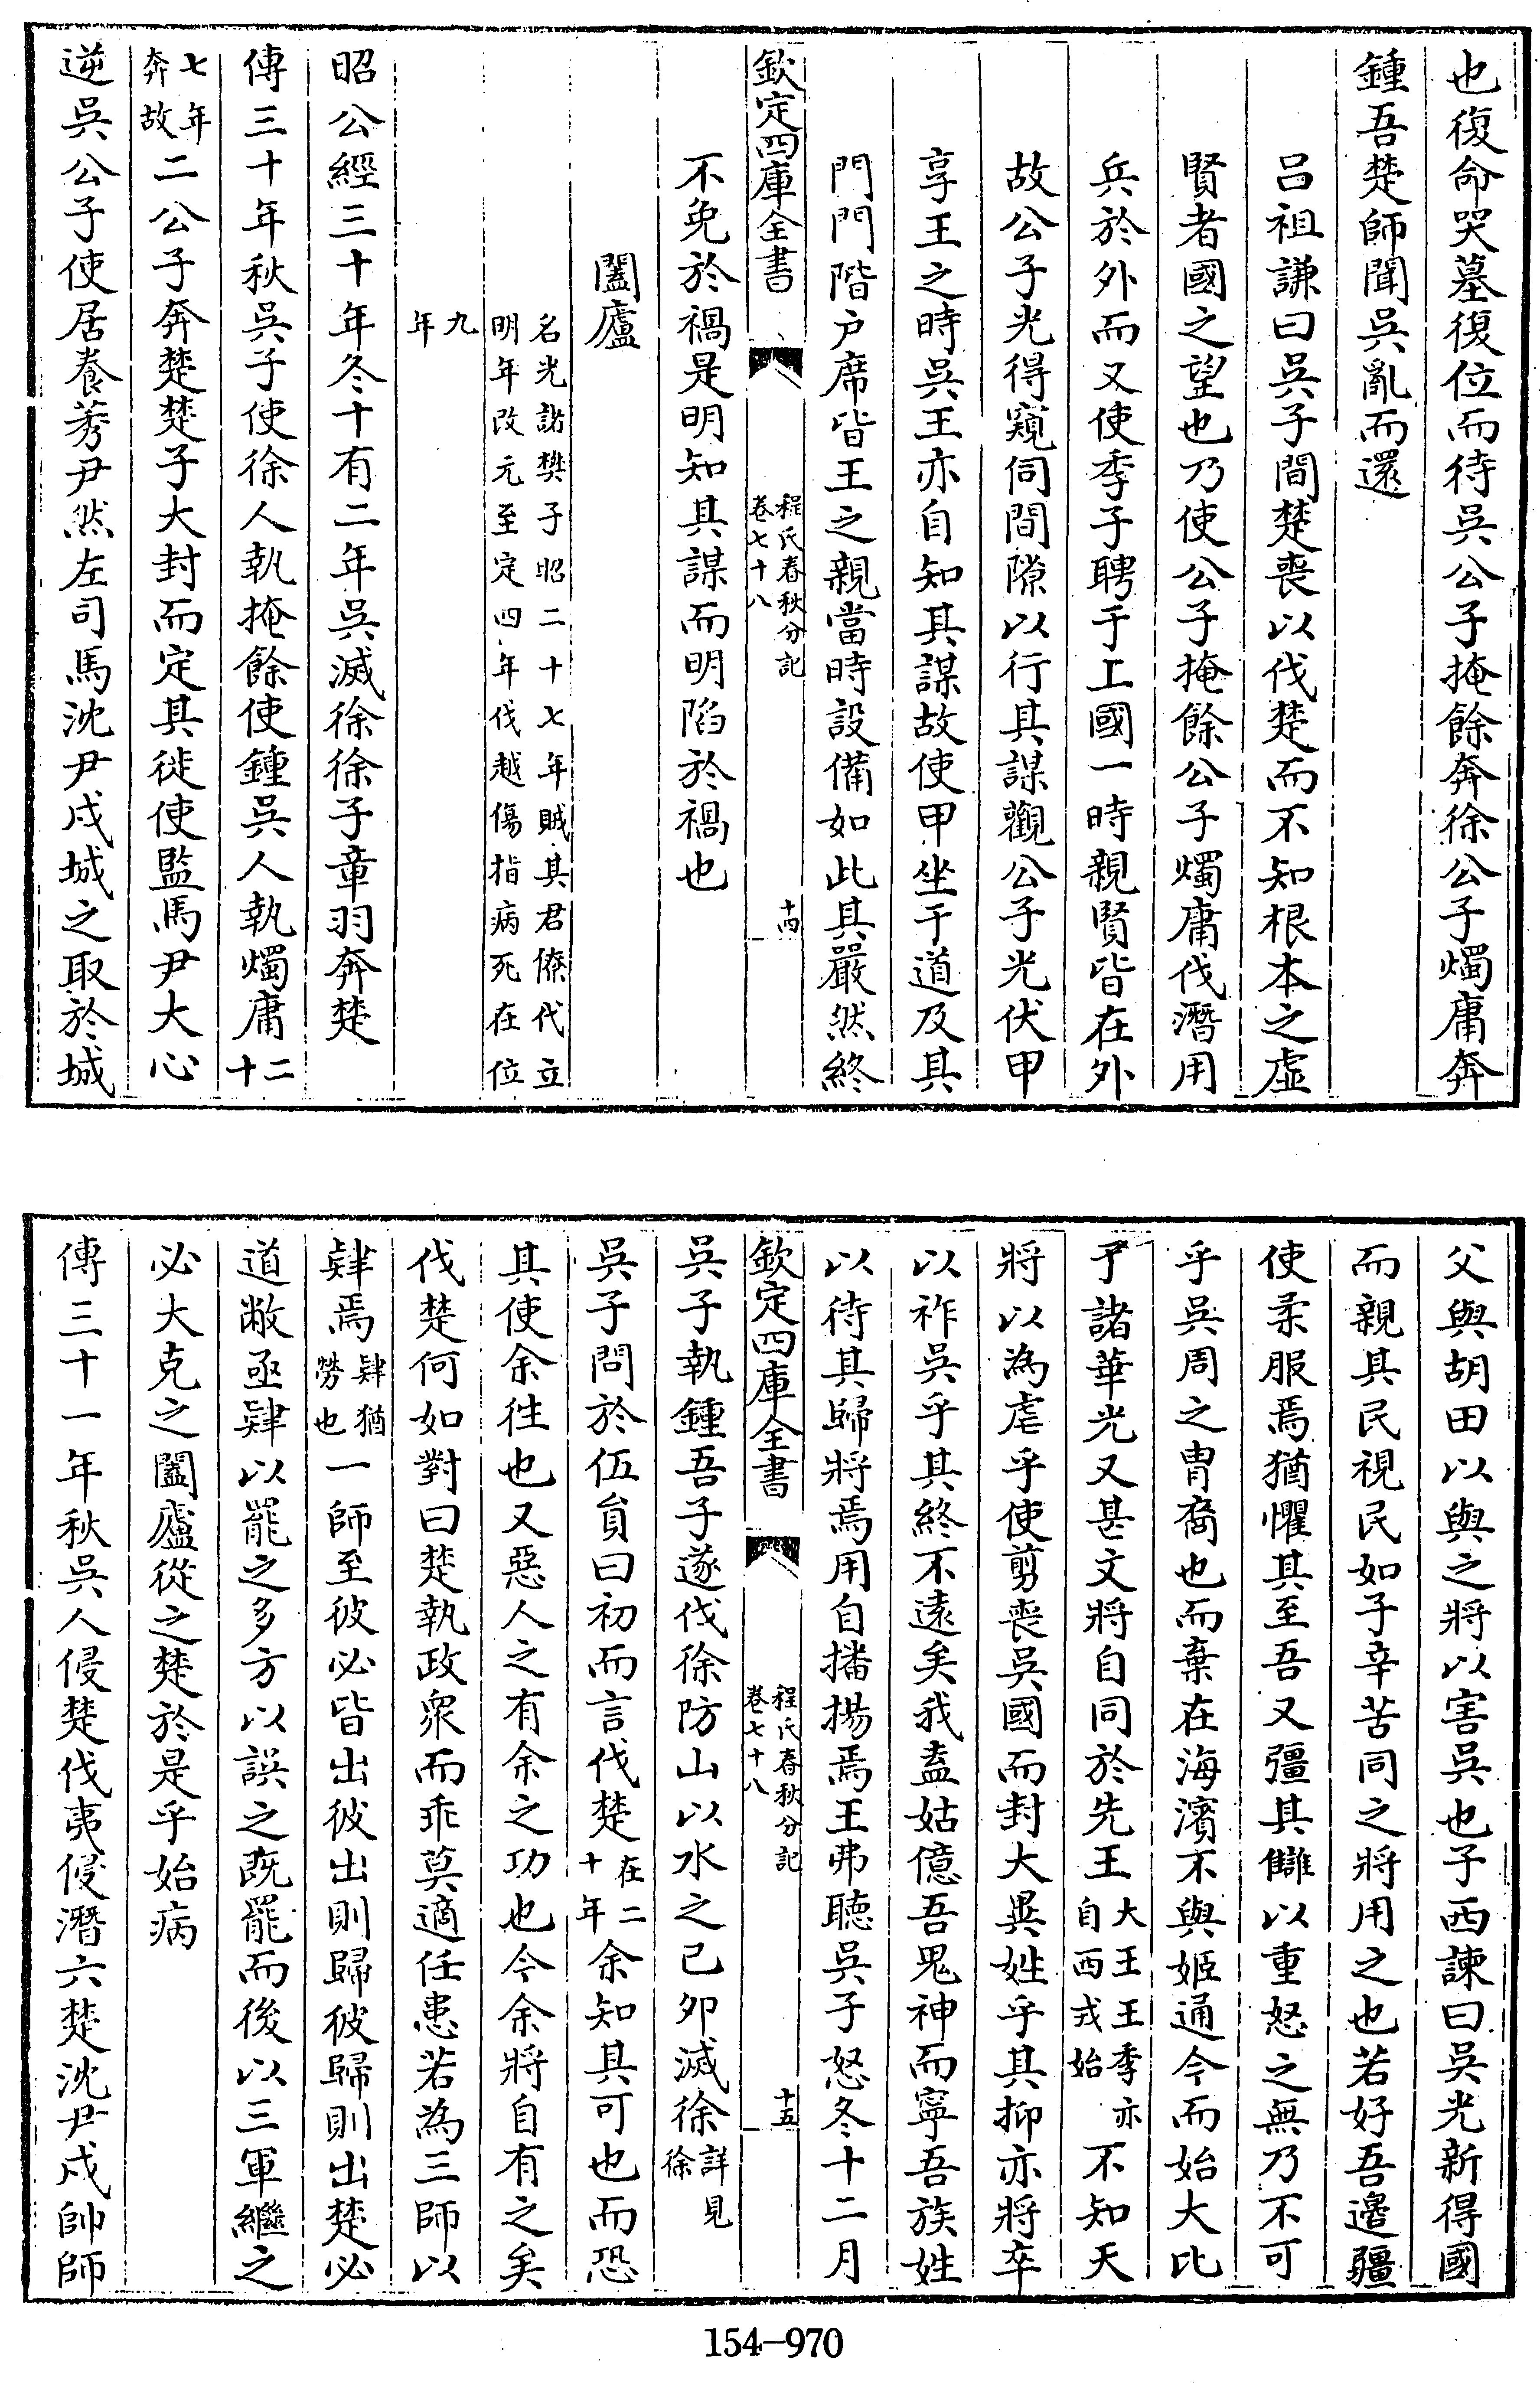 也復命哭墓復位而待吳公子掩餘奔徐公子燭庸奔
鍾吾楚師聞吳亂而還
吕祖謙曰吳子間楚喪以伐楚而不知根本之虛
賢者國之望也乃使公子掩餘公子燭庸伐潛用
兵於外而又使季子聘于上國一時親賢皆在外
故公子光得窺伺間隙以行其謀觀公子光伏甲
享王之時吳王亦自知其謀故使甲坐于道及其
門門階户席皆王之親當時設備如此其嚴然終
欽定四庫全書
程氏春秋分記
卷七十八
十四
不免於禍是明知其謀而明陷於禍也
闔廬
名光諸樊子昭二十七年賊其君僚代立
明年改元至定四年伐越傷指病死在位
九
年
昭公經三十年冬十有二年吳滅徐徐子章羽奔楚
傳三十年秋吳子使徐人執掩餘使鍾吳人執燭庸二十
七年奔故二公子奔楚楚子大封而定其徙使監馬尹大心
逆吳公子使居養莠尹然左司馬沈尹戌城之取於城
父與胡田以與之將以害吳也子西諫曰吳光新得國
而親其民視民如子辛苦同之將用之也若好吾邊疆
使柔服焉猶懼其至吾又彊其讎以重怒之無乃不可
乎吳周之胄裔也而棄在海濱不與姬通今而始大比
于諸華光又甚文將自同於先王大王王季亦自西戎始不知天
將以為虐乎使剪喪吳國而封大異姓乎其抑亦將卒
以祚吳乎其終不遠矣我盍姑億吾鬼神而寧吾族姓
以待其歸將焉用自播揚焉王弗聽吳子怒冬十二月
欽定四庫全書
程氏春秋分記
卷七十八
十五
吳子執鍾吾子遂伐徐防山以水之己卯滅徐詳見徐
吳子問於伍員曰初而言伐楚在二十年余知其可也而恐
其使余往也又惡人之有余之功也今余將自有之矣
伐楚何如對曰楚執政衆而乖莫適任患若為三師以
肄焉肄猶勞也一師至彼必皆出彼出則歸彼歸則出楚必
道敝亟肄以罷之多方以誤之既罷而後以三軍繼之
必大克之闔廬從之楚於是乎始病
傳三十一年秋吳人侵楚伐夷侵潛六楚沈尹戌帥師
154-970